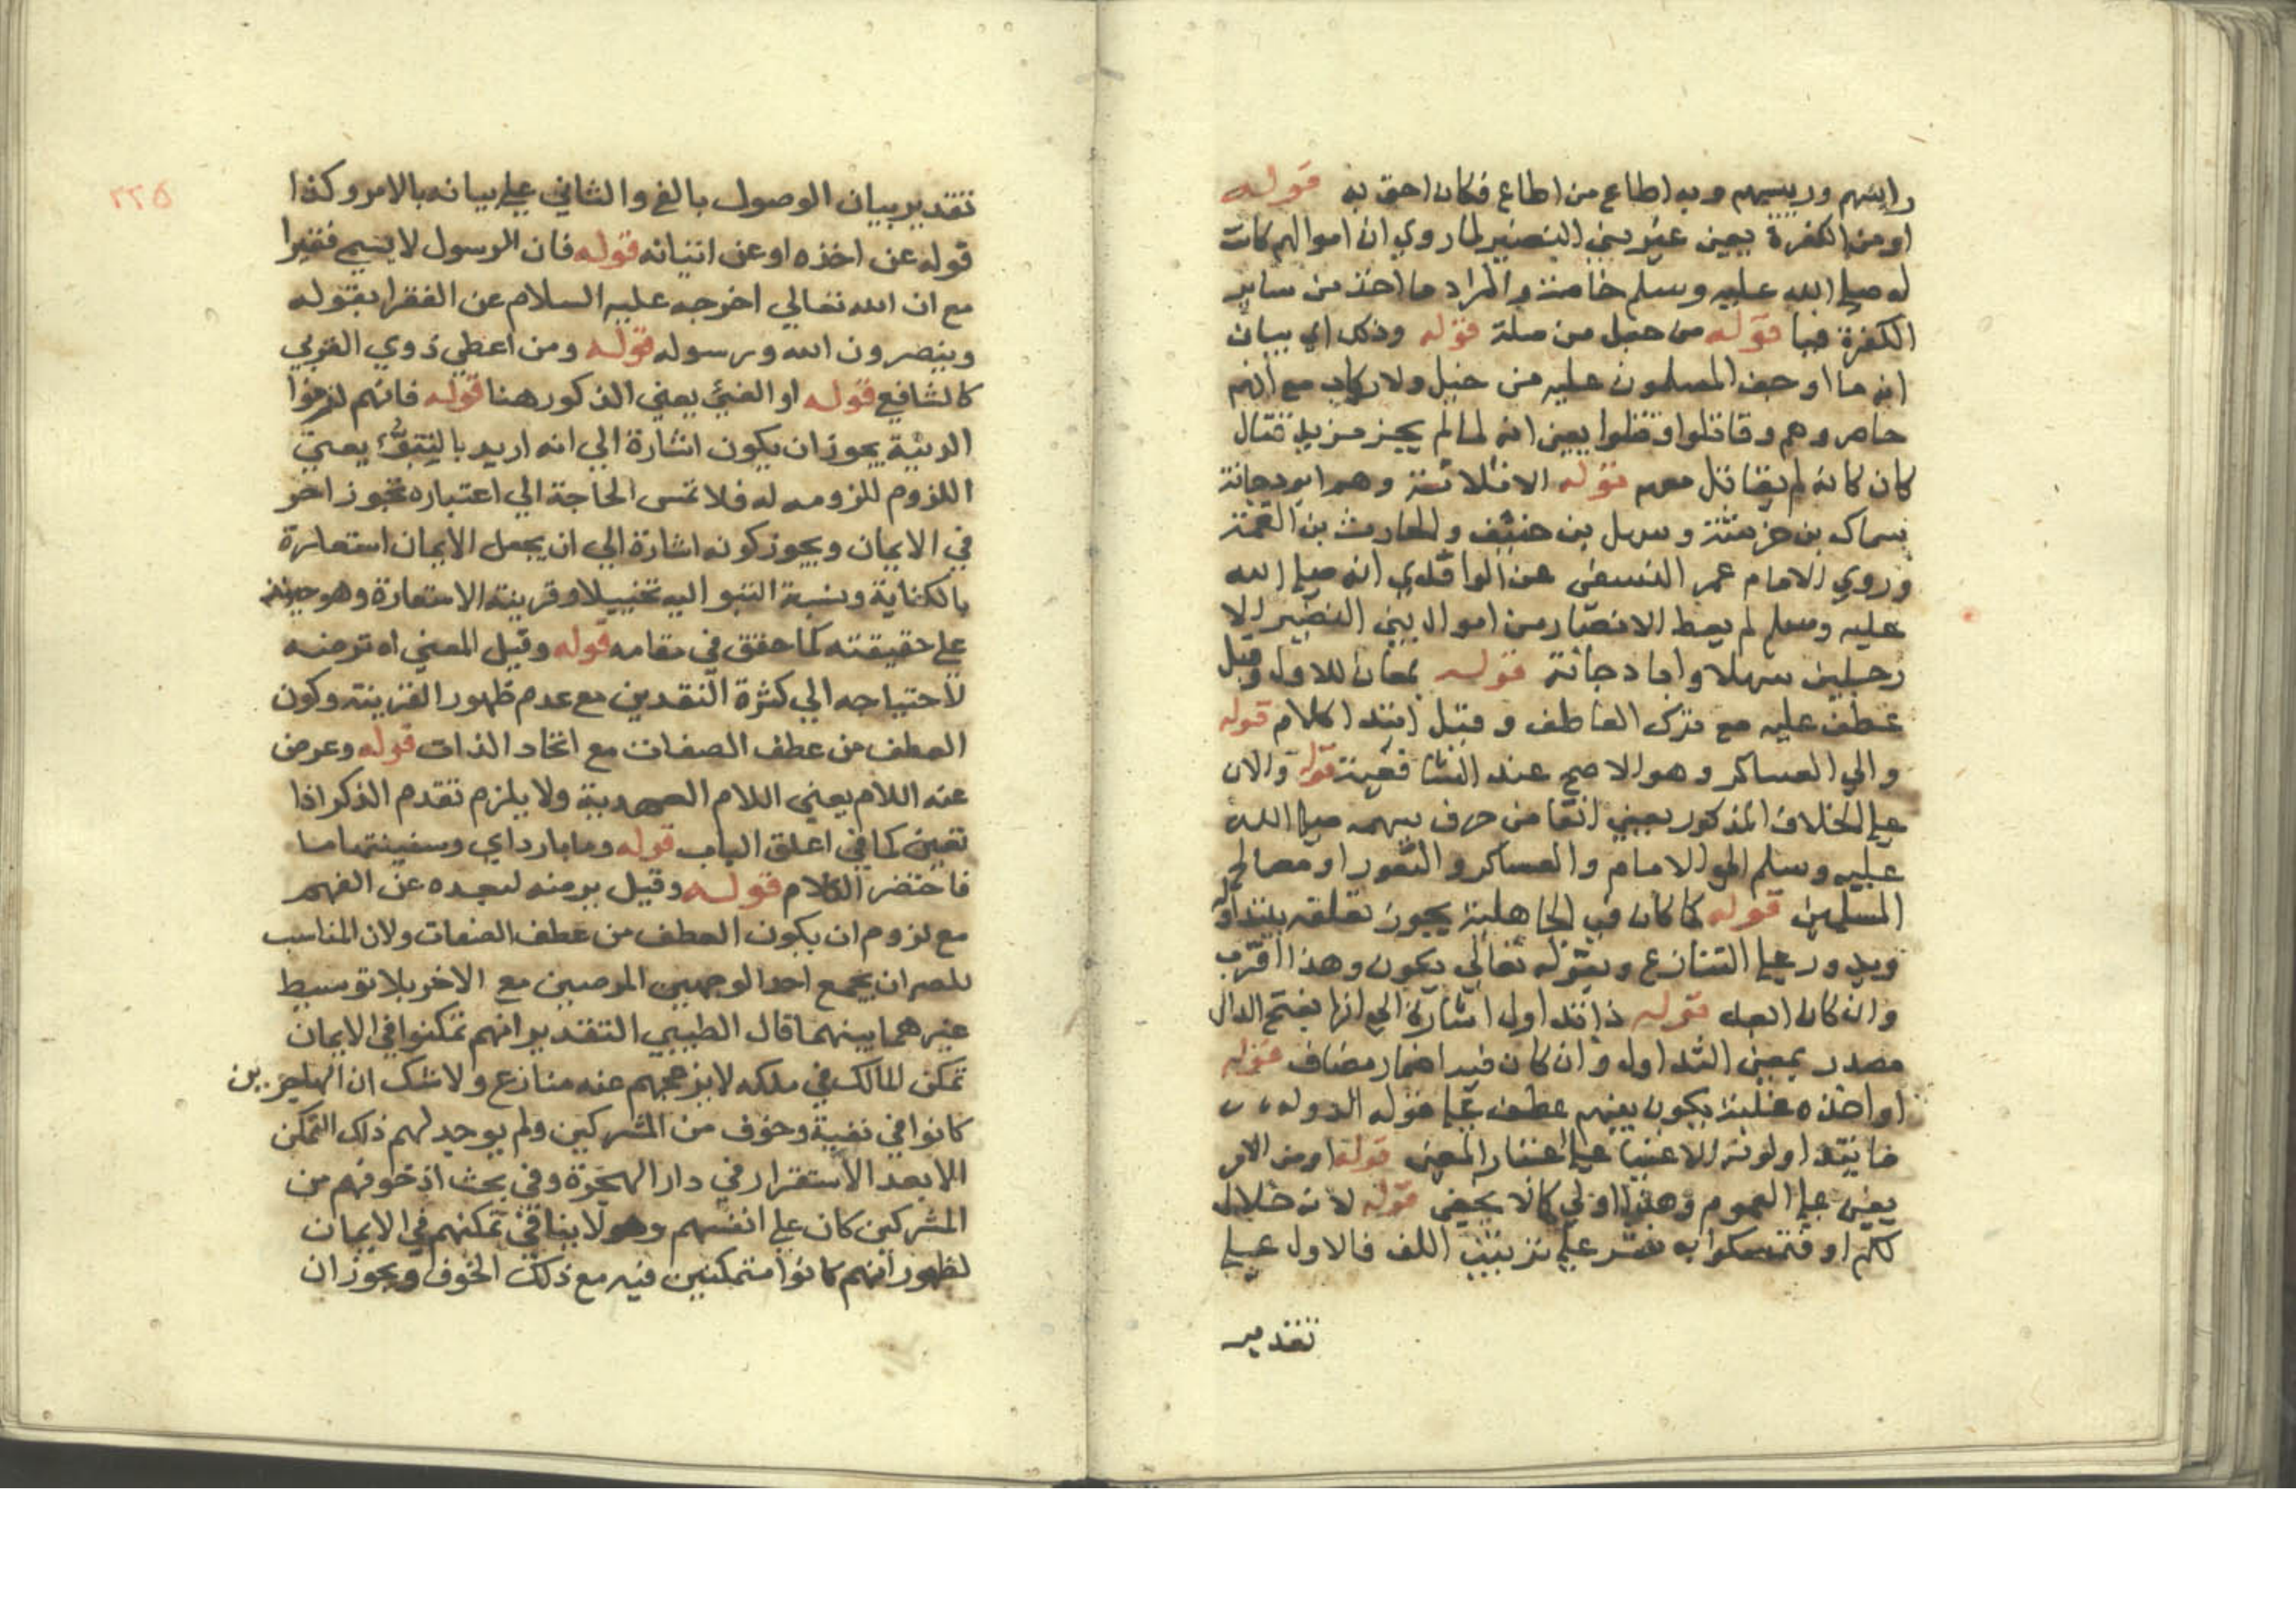 رايسهم ورييسهم وبه اطاع من اطاع فكان احق به قوله
او من الكفرة يعين غير بني النضير لما روي ان اموالهم كانت
له صلى الله عليه وسلم خاصة والمراد ما اخذ من ساير
الكفرة فيا قوله من حبل من صلة قوله وذلك اي بيان
انه ما اوجف المسلمون عليه من خيل ولا ركاب مع انهم
حاصروهم وقاتلوا وقتلوا يعين انه لما لم يجز مزيد قتال
كان كانه لم يقاتل معهم قوله الا ثلاثة وهم ابو دجانة
سماك بن خرشة وسهل بن حنيف والحارث بن الصمة
وروي الامام عمر النسفي عن الواقدي انه صلى الله
عليه وسلم لم يعط الانصار من اموال بني النضير الا
رجلين سهلا وابا دجانة قوله بمعان للاول وقيل
عطف عليه مع ترك العاطف وقيل ابتدا كلام قوله
والي العساكر وهو الاصح عند الشافعية قوله والان
علي الخلاف المذكور يعني انفا من صرف سهمه صلى الله
عليه وسلم الي الامام والعساكر والثغور او مصالح
المسلمين قوله كما كان في الجاهلية يجوز تعلقه بيتداوله
ويدور علي التنازع وبقوله تعالي يكون وهذا اقرب
وان كان ابعد قوله ذا تداول اشارة الي انها بفتح الدال
مصدر بمعني التداول وان كان فيه اضمار مضاف قوله
او اخذه غلبة يكون بينهم عطف علي قوله الدولة
ما يتداولونه الاغنيا علي اعتبار المعني قوله او من الامر
يعين علي العموم وهذا اولي كما لا يخفي قوله لانه حلال
لكم او فتمسكوا به نشر علي ترتيب اللف فالاول علي
تقدير
٢٣٥
تقدير بيان الوصول بالفئ والثاني علي بيانه بالامر وكذا
قوله عن اخذه او عن اتيانه قوله فان الرسول لا يسمي فقيرا
مع ان الله تعالي اخرجه عليه السلام عن الفقرا بقوله
وينصرون الله ورسوله قوله ومن اعطي ذوي القربي
كالشافع قوله او الفئ يعني المذكور هنا قوله فانهم لزموا
المدينة يجوز ان يكون اشارة الي انه اريد بالتبوؤ يعني
اللزوم للزومه له فلا تمس الحاجة الي اعتباره تجوز اخر
في الايمان ويجوز كونه اشارة الي ان يجعل الايمان استعارة
بالكناية ونسبة التبو اليه تخييلا وقرينة الاستعارة وهو حينئذ
علي حقيقته كما حقق في مقامه قوله وقيل المعني اه ترضه
لاحتياجه الي كثرة النقدين مع عدم ظهور القرينة وكون
العطف من عطف الصفات مع اتحاد الذات قوله وعوض
عنه اللام يعني اللام العهدية ولا يلزم تقدم الذكر اذا
تعين كما في اعلق الباب قوله وما بارداي وسقيتها ما
فاختصر الكلام قوله وقيل برمنه لبعده عن الفهم
مع لزوم ان يكون العطف من عطف الصفات ولان المناسب
للمص ان يجمع احد الوجهين المرضين مع الاخر بلا توسيط
غيرهما بينهما قال الطيبي التقدير انهم تمكنوا في الايمان
تمكن المالك في ملكه لا يزعجهم عنه منازع ولا شك ان المهاجرين
كانوا في تقية وخوف من المشركين ولم يوجد لهم ذلك التمكن
الا بعد الاستقرار في دار الهجرة وفي بحث اذ خوفهم من
المشركين كان علي انفسهم وهو لا ينافي تمكنهم في الايمان
لظهور انهم كانوا متمكنين فيه مع ذلك الخوف ويجوز ان